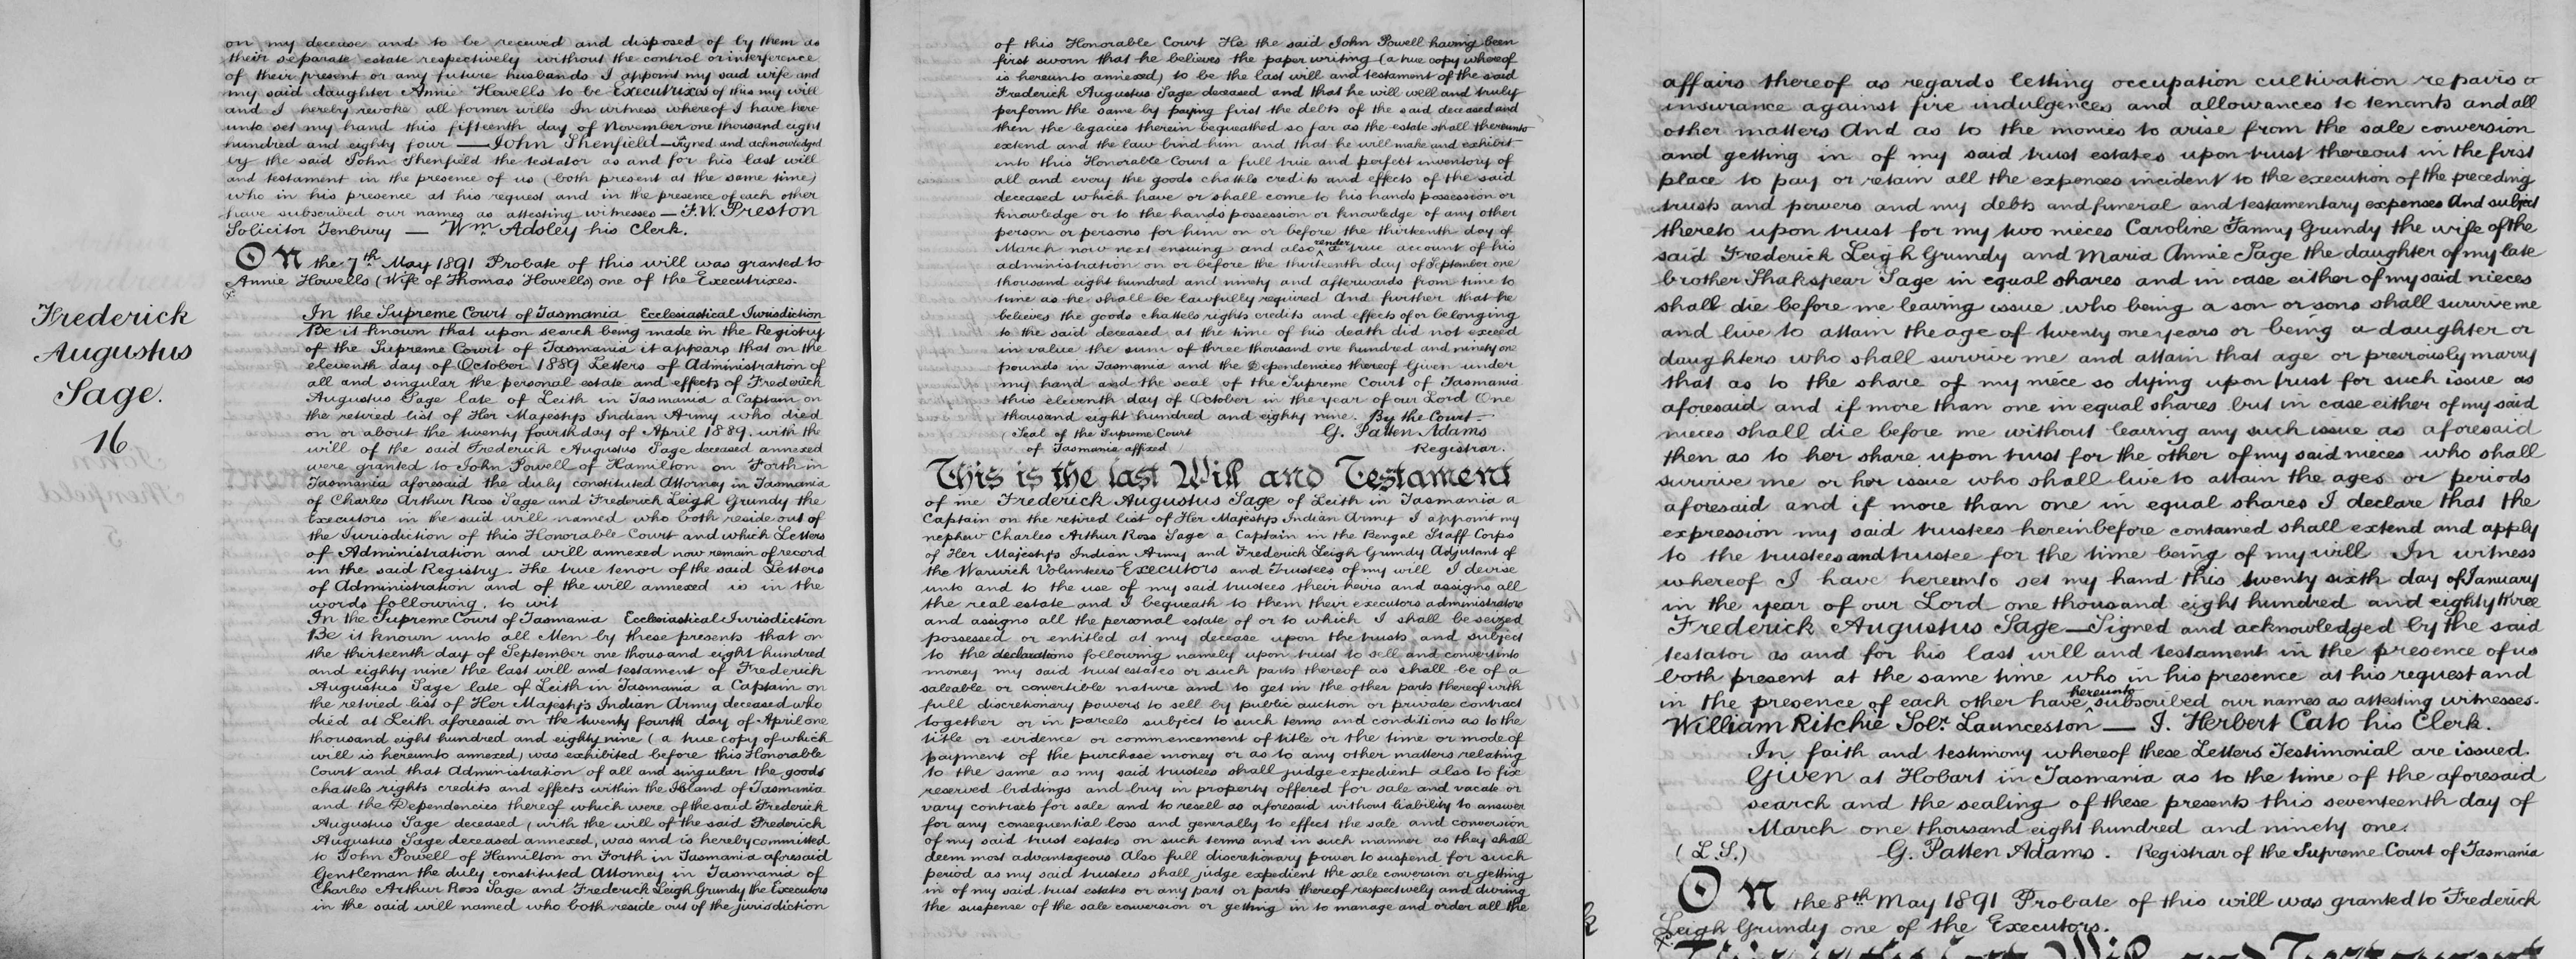 on my decease and to be received and disposed of by them as
their separate estate respectively without the control or interference
of their present or any future husbands I appoint my said wife and
my said daughter Annie Howells to be Executrixes of this my will
and I hereby revoke all former wills In witness whereof I have here
unto set my hand this fifteenth day of November one thousand eight
hundred and eighty four — John Shenfield — Signed and acknowledged
by the said John Shenfield the testator as and for his last will
and testament in the presence of us (both present at the same time)
who in his presence at his request and in the presence of each other
have subscribed our names as attesting witnesses — F. W. Preston
Solicitor Tenbury — Wm. Adsley his Clerk.
On the 7th May 1891 Probate of this will was granted to
Annie Howells (Wife of Thomas Howells) one of the Executrixes.
Frederick
Augustus
Sage.
16
In the Supreme Court of Tasmania Ecclesiastical Jurisdiction
Be it known that upon search being made in the Registry
of the Supreme Court of Tasmania it appears that on the
eleventh day of October 1889 Letters of Administration of
all and singular the personal estate and effects of Frederick
Augustus Sage late of Leith in Tasmania a Captain on
the retired list of Her Majestys Indian Army who died
on or about the twenty fourth day of April 1889. with the
will of the said Frederick Augustus Sage deceased annexed
were granted to John Powell of Hamilton on Forth in
Tasmania aforesaid the duly constituted Attorney in Tasmania
of Charles Arthur Ross Sage and Frederick Leigh Grundy the
Executors in the said will named who both reside out of
the Jurisdiction of this Honorable Court and which Letters
of Administration and will annexed now remain of record
in the said Registry. The true tenor of the said Letters
of Administration and of the will annexed is in the
words following. to wit
In the Supreme Court of Tasmania Ecclesiastical Jurisdiction
Be it known unto all Men by these presents that on
the thirteenth day of September one thousand eight hundred
and eighty nine the last will and testament of Frederick
Augustus Sage late of Leith in Tasmania a Captain on
the retired list of Her Majestys Indian Army deceased who
died at Leith aforesaid on the twenty fourth day of April one
thousand eight hundred and eighty nine (a true copy of which
will is hereunto annexed) was exhibited before this Honorable
Court and that Administration of all and singular the goods
chattels rights credits and effects within the Island of Tasmania
and the Dependencies thereof which were of the said Frederick
Augustus Sage deceased (with the will of the said Frederick
Augustus Sage deceased annexed, was and is hereby committed
to John Powell of Hamilton on Forth in Tasmania aforesaid
Gentleman the duly constituted Attorney in Tasmania of
Charles Arthur Ross Sage and Frederick Leigh Grundy the Executors
in the said will named who both reside out of the jurisdiction
of this Honorable Court He the said John Powell having been
first sworn that he believes the paper writing (a true copy whereof
is hereunto annexed) to be the last will and testament of the said
Frederick Augustus Sage deceased and that he will well and truly
perform the same by paying first the debts of the said deceased and
then the legacies therein bequeathed so far as the estate shall thereunto
extend and the law bind him and that he will make and exhibit
into this Honorable Court a full true and perfect inventory of
all and every the goods chattels credits and effects of the said
deceased which have or shall come to his hands possession or
knowledge or to the hands possession or knowledge of any other
person or persons for him on or before the thirteenth day of
March now next ensuing and also render a true account of his
administration on or before the thirteenth day of September one
thousand eight hundred and ninety and afterwards from time to
time as he shall be lawfully required And further that he
believes the goods chattels rights credits and effects of or belonging
to the said deceased at the time of his death did not exceed
in value the sum of three thousand one hundred and ninety one
pounds in Tasmania and the Dependencies thereof Given under
my hand and the seal of the Supreme Court of Tasmania
this eleventh day of October in the year of our Lord One
thousand eight hundred and eighty nine. By the Court —
(Seal of the Supreme Court G. Patten Adams
of Tasmania affixed) Registrar.
This is the last Will and Testament
of me Frederick Augustus Sage of Leith in Tasmania a
Captain on the retired list of Her Majestys Indian Army I appoint my
nephew Charles Arthur Ross Sage a Captain in the Bengal Staff Corps
of Her Majestys Indian Army and Frederick Leigh Grundy Adjutant of
the Warwick Volunteers Executors and Trustees of my will I devise
unto and to the use of my said trustees their heirs and assigns all
the real estate and I bequeath to them their executors administrators
and assigns all the personal estate of or to which I shall be seized
possessed or entitled at my decease upon the trusts and subject
to the declarations following namely upon trust to sell and convert into
money my said trust estates or such parts thereof as shall be of a
saleable or convertible nature and to get in the other parts thereof with
full discretionary powers to sell by public auction or private contract
together or in parcels subject to such terms and conditions as to the
title or evidence or commencement of title or the time or mode of
payment of the purchase money or as to any other matters relating
to the same as my said trustees shall judge expedient also to fix
reserved biddings and buy in property offered for sale and vacate or
vary contracts for sale and to resell as aforesaid without liability to answer
for any consequential loss and generally to effect the sale and conversion
of my said trust estates on such terms and in such manner as they shall
deem most advantageous Also full discretionary power to suspend for such
period as my said trustees shall judge expedient the sale conversion or getting
in of my said trust estates or any part or parts thereof respectively and during
the suspense of the sale conversion or getting in to manage and order all the
affairs thereof as regards letting occupation cultivation repairs &
insurance against fire indulgences and allowances to tenants and all
other matters And as to the monies to arise from the sale conversion
and getting in of my said trust estates upon trust thereout in the first
place to pay or retain all the expenses incident to the execution of the preceding
trusts and powers and my debts and funeral and testamentary expenses And subject
thereto upon trust for my two nieces Caroline Fanny Grundy the wife of the
said Frederick Leigh Grundy and Maria Annie Sage the daughter of my late
brother Shakspear Sage in equal shares and in case either of my said nieces
shall die before me leaving issue who being a son or sons shall survive me
and live to attain the age of twenty one years or being a daughter or
daughters who shall survive me and attain that age or previously marry
that as to the share of my niece so dying upon trust for such issue as
aforesaid and if more than one in equal shares but in case either of my said
nieces shall die before me without leaving any such issue as aforesaid
then as to her share upon trust for the other of my said nieces who shall
survive me or her issue who shall live to attain the ages or periods
aforesaid and if more than one in equal shares I declare that the
expression my said trustees hereinbefore contained shall extend and apply
to the trustees and trustee for the time being of my will In witness
whereof I have hereunto set my hand this twenty sixth day of January
in the year of our Lord one thousand eight hundred and eighty three
Frederick Augustus Sage — Signed and acknowledged by the said
testator as and for his last will and testament in the presence of us
both present at the same time who in his presence at his request and
in the presence of each other have hereunto subscribed our names as attesting witnesses.
William Ritchie Solr. Launceston — I. Herbert Cato his Clerk.
In faith and testimony whereof these Letters Testimonial are issued.
Given at Hobart in Tasmania as to the time of the aforesaid
search and the sealing of these presents this seventeenth day of
March one thousand eight hundred and ninety one.
(L.S.) G. Patten Adams. Registrar of the Supreme Court of Tasmania
On the 8th May 1891 Probate of this will was granted to Frederick
Leigh Grundy one of the Executors.